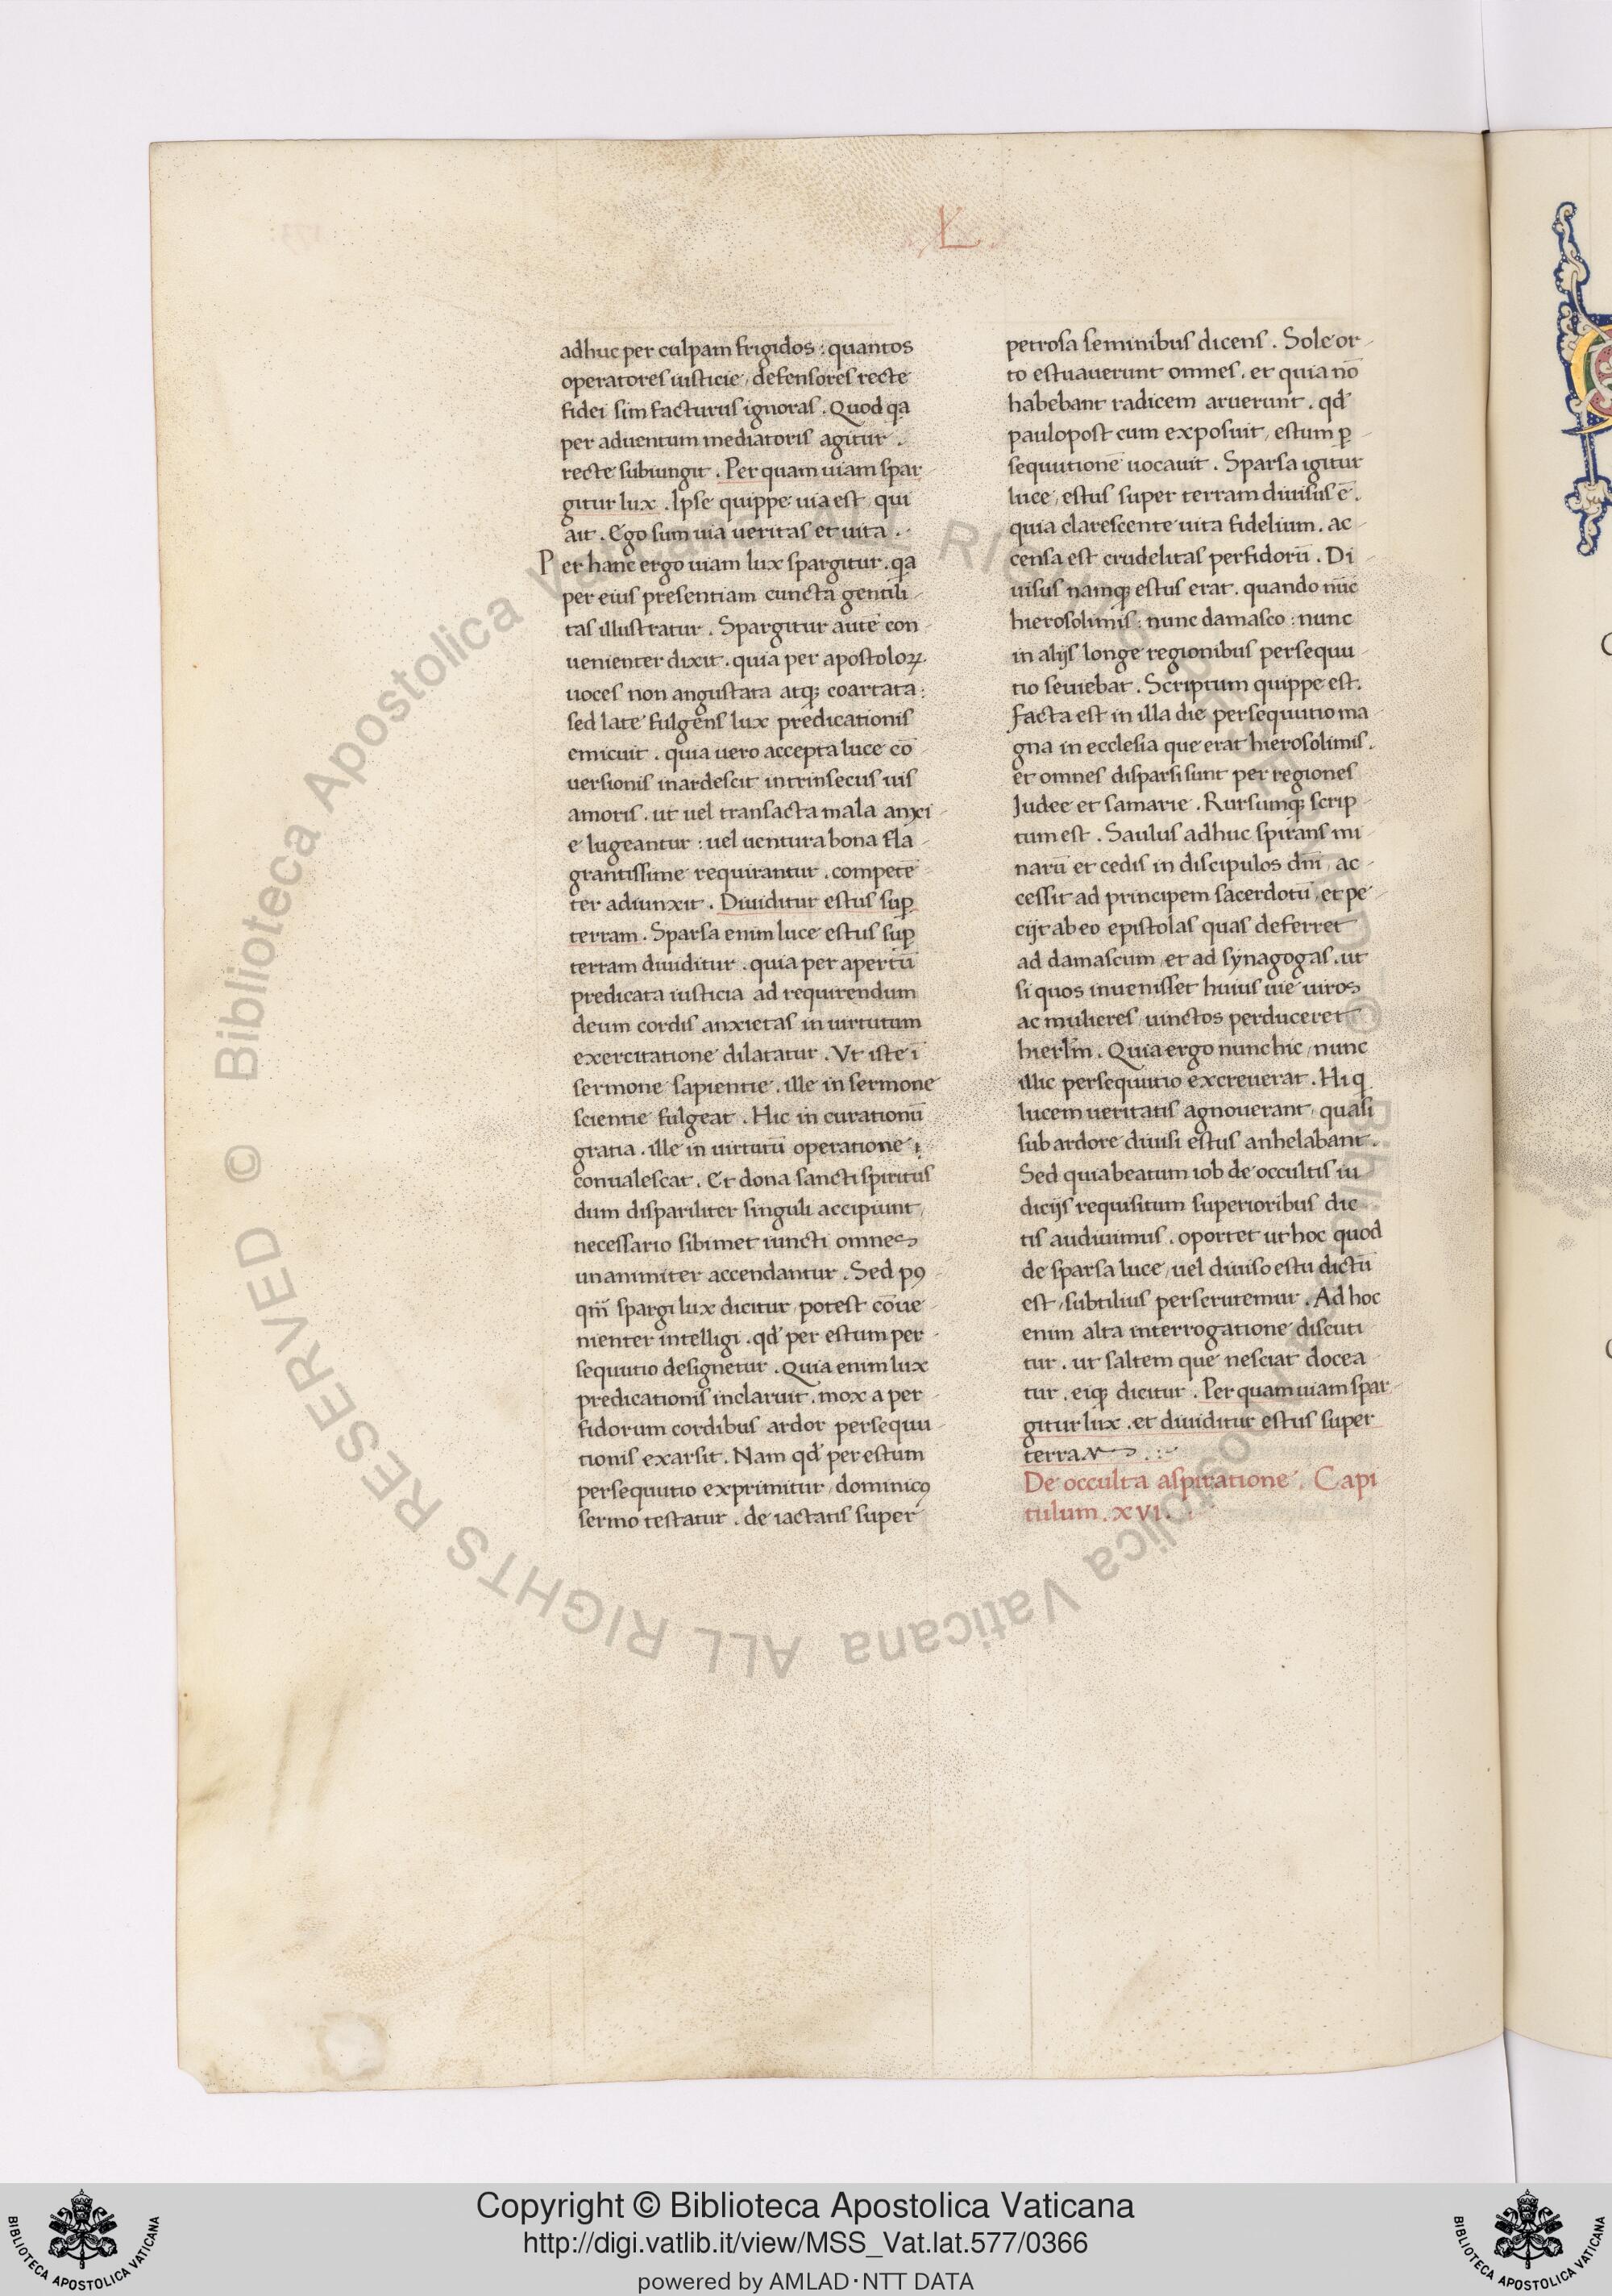 .L.
adhuc per culpam frigidos : quantos
operatores iusticie , defensores recte
fidei sim facturus ignoras . Quod qa
per aduentum mediatoris agitur .
recte subiungit . Per quam uiam spar
gitur lux . Ipse quippe uia est , qui
ait . Ego sum uia ueritas et uita .
Per hanc ergo uiam lux spargitur . qa
per eius presentiam cuncta gentili
tas illustratur . Spargitur autē con
uenienter dixit . quia per apostoloꝝ
uoces non angustata atqꝫ coartata :
sed late fulgens lux predicationis
emicuit . quia uero accepta luce cō
uersionis inardescit intrinsecus uis
amoris . ut uel transacta mala anxi
e lugeantur : uel uentura bona fla
grantissime requirantur . competē
ter adiunxit . Diuiditur estus suꝑ
terram . Sparsa enim luce estus suꝑ
terram diuiditur . quia per apertū
predicata iusticia ad requirendum
deum cordis anxietas in uirtutum
exercitatione dilatatur . Vt iste ī
sermone sapientie . ille in sermone
scientie fulgeat . Hic in curationū
gratia . ille in uirtutū operatione
conualescat . Et dona sancti spiritus
dum dispariliter singuli accipiunt ,
necessario sibimet iuncti omnes
unanimiter accendantur . Sed pꝯ
qm̄ spargi lux dicitur , potest cōue
nienter intelligi . qd̓ per estum per
sequutio designetur . Quia enim lux
predicationis inclaruit . mox a per
fidorum cordibus ardor persequu
tionis exarsit . Nam qd̓ per estum
persequutio exprimitur , dominicꝯ
sermo testatur . de iactatis super
petrosa seminibus dicens . Sole or
to estuauerunt omnes . et quia nō
habebant radicem aruerunt . qd̓
paulopost cum exposuit , estum ꝑ
sequutionē uocauit . Sparsa igitur
luce , estus super terram diuisus ē .
quia clarescente uita fidelium . ac
censa est crudelitas perfidorū . Di
uisus namqꝫ estus erat . quando nūc
hierosolimis : nunc damasco : nunc
in alijs longe regionibus persequu
tio seuiebat . Scriptum quippe est .
facta est in illa die persequutio ma
gna in ecclesia que erat hierosolimis .
et omnes dispersi sunt per regiones
Iudee et samarie . Rursumqꝫ scrip
tum est . Saulus adhuc spirans mi
narū et cedis in discipulos dn̄i , ac
cessit ad principem sacerdotū , et pe
cijt ab eo epistolas quas deferret
ad damascum , et ad synagogas . ut
si quos inuenisset huius uie uiros
ac mulieres , uinctos perduceret
hierl̄m . Quia ergo nunc hic , nunc
illic persequutio excreuerat . Hi q
lucem ueritatis agnouerant , quasi
sub ardore diuisi estus anhelabant .
Sed quia beatum iob de occultis iu
dicijs requisitum superioribus dic
tis audiuimus . oportet ut hoc quod
de sparsa luce , uel diuiso estu dictū
est , subtilius perscrutemur . Ad hoc
enim alta interrogatione discuti
tur . ut saltem que nesciat docea
tur . eiqꝫ dicitur . Per quam uiam spar
gitur lux . et diuiditur estus super
terram .
De occulta aspiratione . Capi
tulum . XVI .
Copyright © Biblioteca Apostolica Vaticana
http://digi.vatlib.it/view/MSS_Vat.lat.577/0366
powered by AMLAD·NTT DATA
BIBLIOTECA APOSTOLICA VATICANA
BIBLIOTECA APOSTOLICA VATICANA